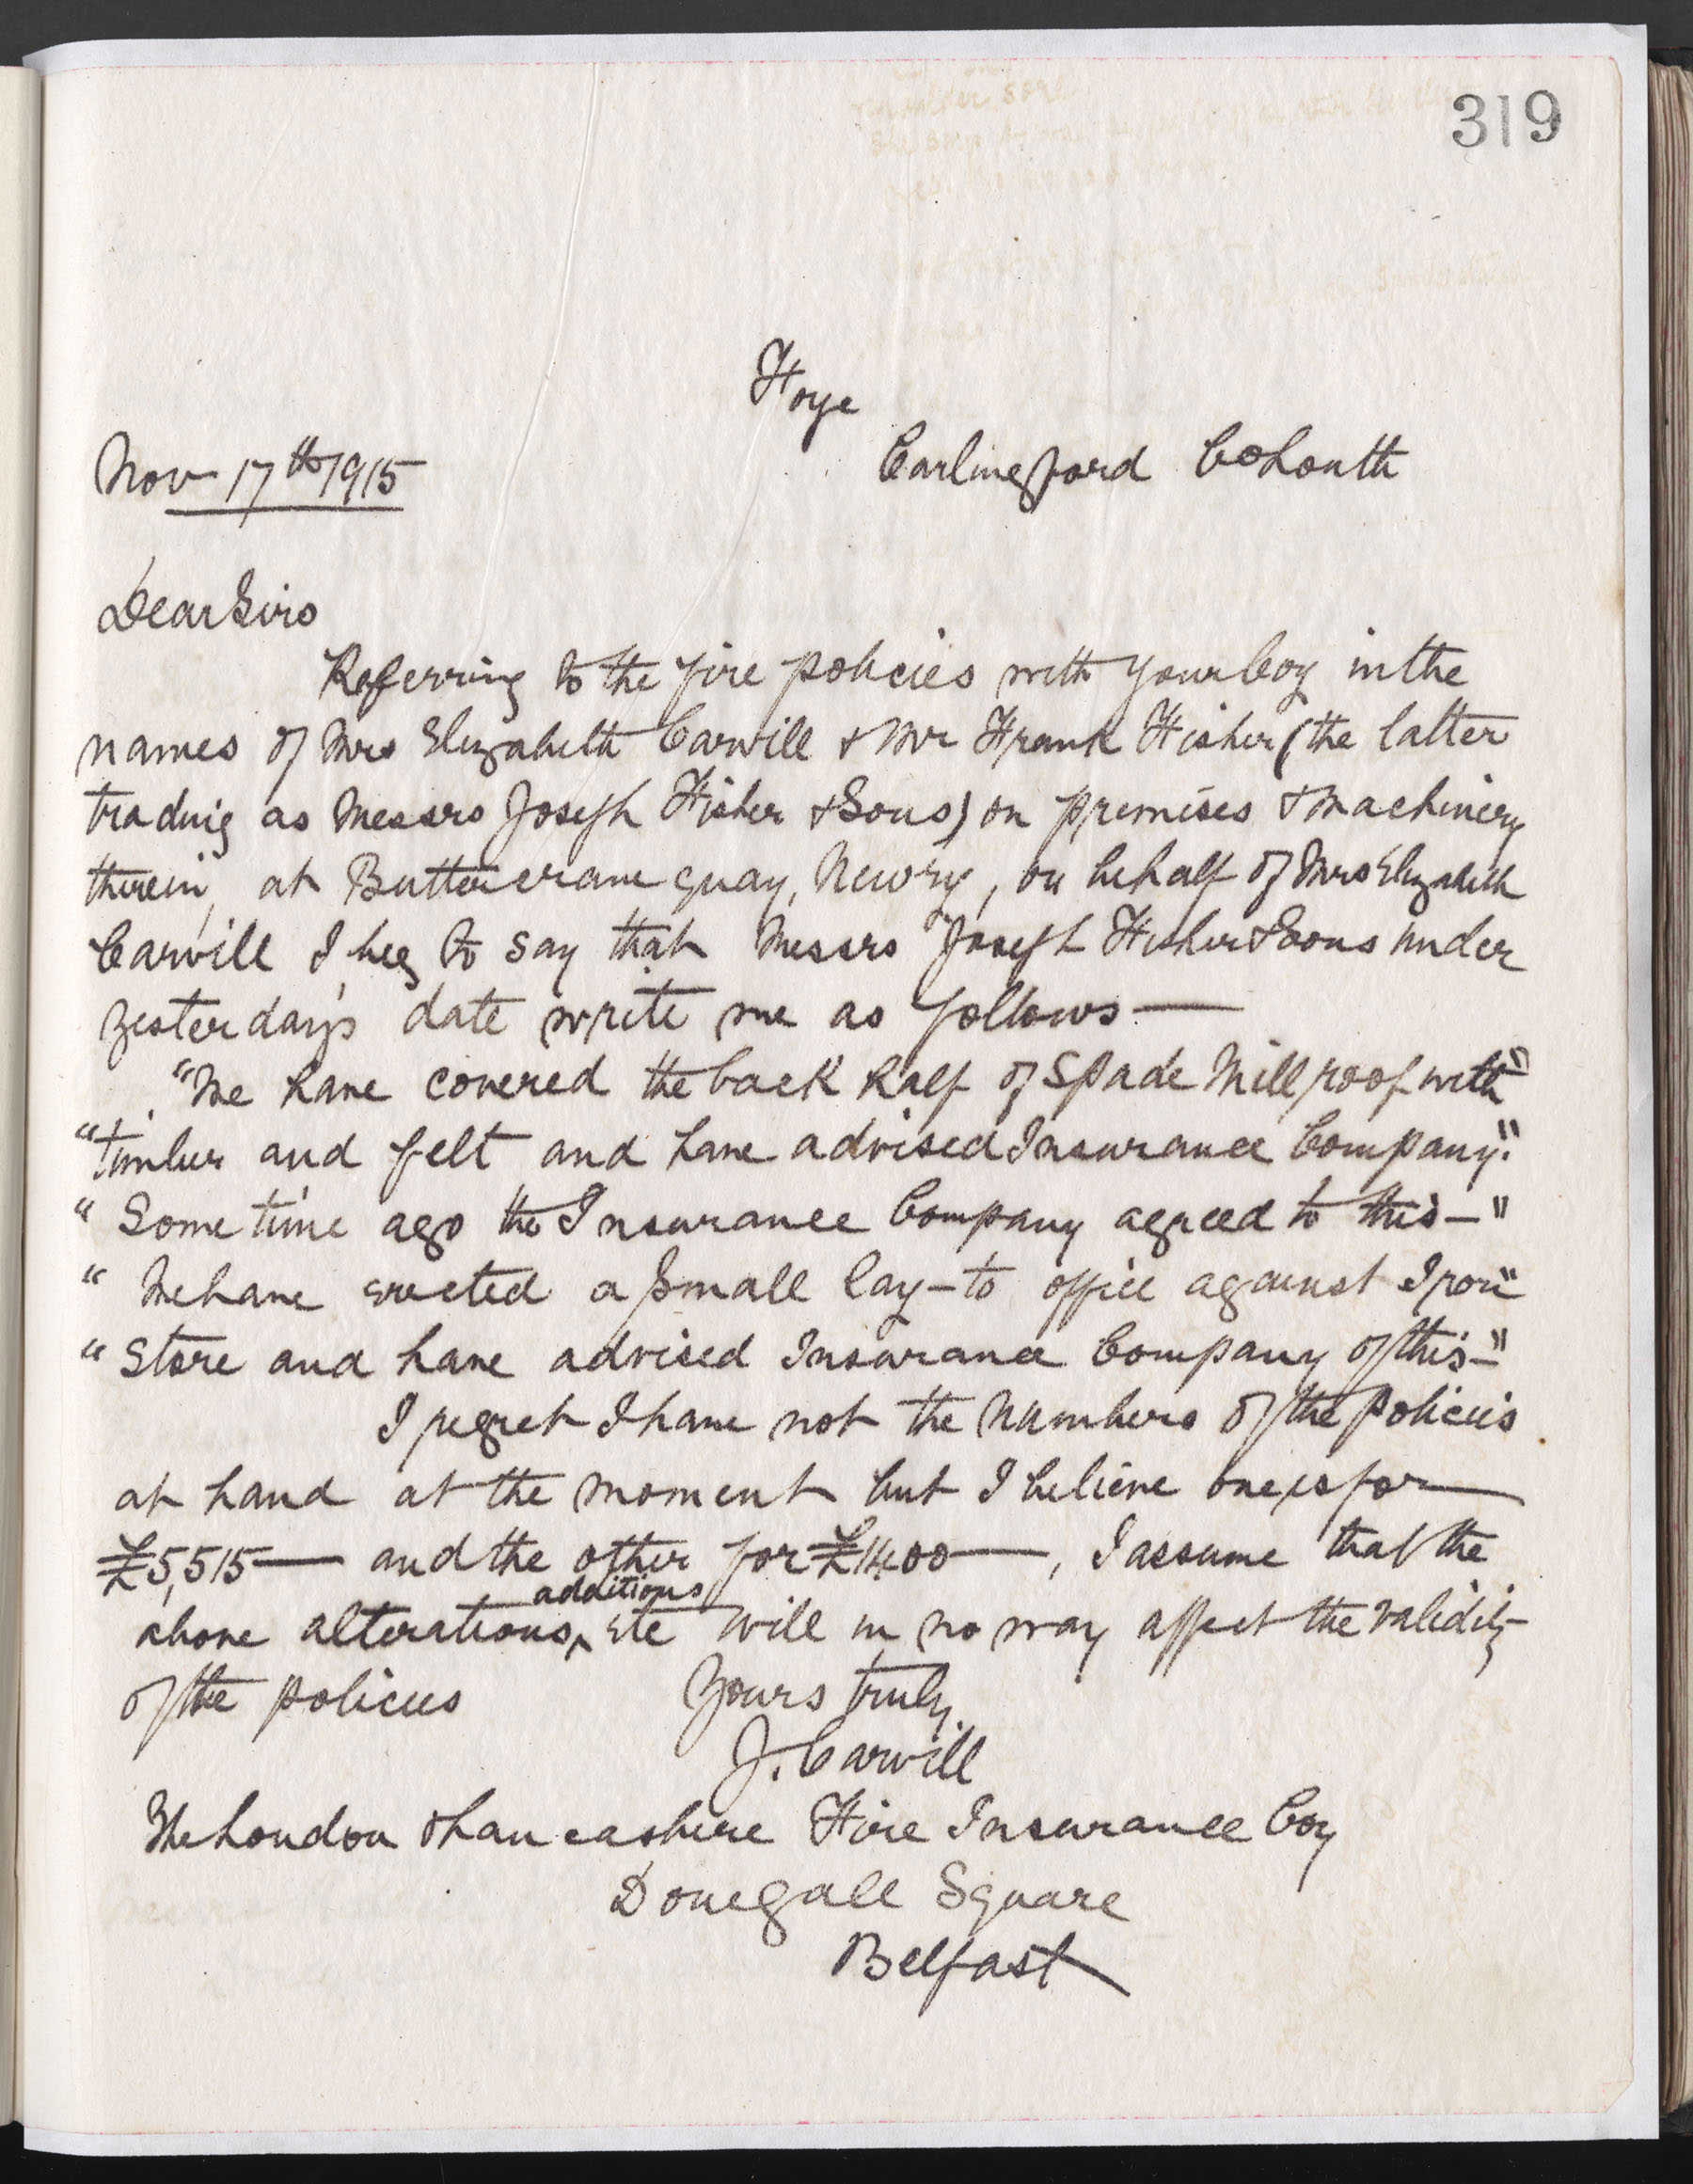 319
Foye
Nov 17th 1915 Carlingford Co Louth
Dear Sirs
Referring to the fire policies with your Coy in the
names of Mrs Elizabeth Carvill & Mr Frank Fisher (the latter
trading as Messrs Joseph Fisher & Sons) on premises & machinery
therein, at Buttercrane quay, Newry, on behalf of Mrs Elizabeth
Carvill I beg to say that Messrs Joseph Fisher & Sons under
yesterday's date write me as follows —
"We have covered the back half of Spade Mill roof with"
"timber and felt and have advised Insurance Company."
"Some time ago the Insurance Company agreed to this —"
"We have erected a small lay-to office against Iron"
"Store and have advised Insurance Company of this —"
I regret I have not the numbers of the policies
at hand at the moment but I believe one is for —
£5,515 — and the other for £1400 —, I assume that the
above alterations, additions etc will in no way affect the validity
of the policies Yours truly
J. Carvill
The London & Lancashire Fire Insurance Coy
Donegall Square
Belfast